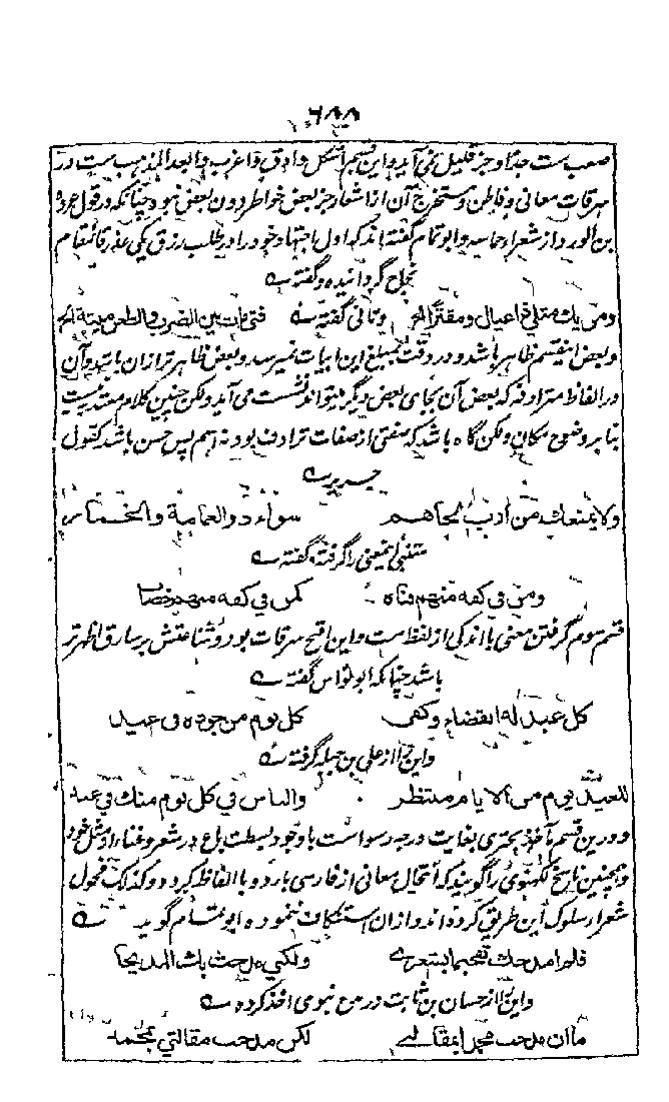 ۶۸۸
صعب ست جدا و جز قلیل نمی آید و این قسم اشکل و ادق و اغرب و ابعد المذهب ست در
سرقات معانی و فاطن و مستخرج آن از اشعار جز بعض خواطر دون بعض نبود چنانکه در قول عروه
بن الورد از شعراء حماسه و ابو تمام گفته اند که اول اجتهاد خود را در طلب رزق یکی عذر قائمقام
نجاح گردانیده و گفته
ومن يك مثلي ذا عيال ومقترا الخ و ثانی گفته فتى مات بين الضرب والطعن ميتة الخ
و بعض اینقسم ظاهر باشد و در دقت بمبلغ این ابیات نمیرسد و بعض ظاهر تر ازان باشد و آن
در الفاظ مترادفه که بعض آن بجای بعض دیگر میتواند نشست می آید ولکن چنین کلام معتد نیست
بنا بر وضوح مکان ولکن گاه باشد که صفتی از صفات ترادف بود نه اسم پس حسن باشد کقول
جریر
ولا يمنعك من ارب لحاهم سواء ذو العمامة والخمار
متنبی اینمعنی را گرفته گفته
ومن في كفه منهم قناة كمن في كفه منهم خضاب
قسم سوم گرفتن معنی با اندکی از لفظ ست و این اقبح سرقات بود و شناعتش بر سارق اظهر تر
باشد چنانکه ابو نواس گفته
كل عيد له انقضاء وكفى كل يوم من جوده في عيد
و این را از علی بن جبله گرفته
للعيد يوم من الايام منتظر والناس في كل يوم منك في عيد
و درین قسم مآخذ بحتری بغایت درجه رسواست با وجود بسطت باع در شعر و غناء او مثل خود
و همچنین ناسخ لکهنوی را گویند که انتحال معانی از فارسی بارد و با الفاظ کرده و کذلک فحول
شعراء سلوک این طریق کرده اند و ازان استنکاف ننموده ابو تمام گوید
فلم امدحك تفخيما بشعري ولكني مدحت بك المديحا
و این را از حسان بن ثابت در مدح نبوی اخذ کرده
ما ان مدحت محمدا بمقالتي لكن مدحت مقالتي بمحمد